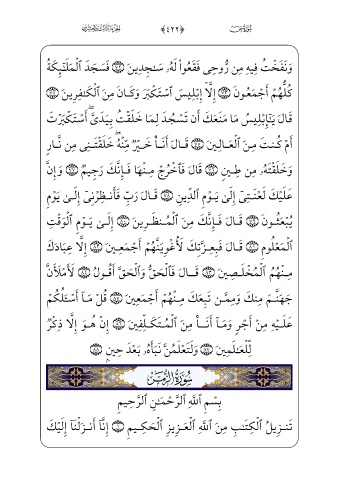 سُورَةُ صٓ ﴿٤٢٢﴾ الجزء الثالث والعشرون
وَنَفَخْتُ فِيهِ مِن رُّوحِى فَقَعُوا۟ لَهُۥ سَـٰجِدِينَ فَسَجَدَ ٱلْمَلَـٰٓئِكَةُ
كُلُّهُمْ أَجْمَعُونَ إِلَّآ إِبْلِيسَ ٱسْتَكْبَرَ وَكَانَ مِنَ ٱلْكَـٰفِرِينَ
قَالَ يَـٰٓإِبْلِيسُ مَا مَنَعَكَ أَن تَسْجُدَ لِمَا خَلَقْتُ بِيَدَىَّ ۖ أَسْتَكْبَرْتَ
أَمْ كُنتَ مِنَ ٱلْعَالِينَ قَالَ أَنَا۠ خَيْرٌ مِّنْهُ ۖ خَلَقْتَنِى مِن نَّارٍ
وَخَلَقْتَهُۥ مِن طِينٍ قَالَ فَٱخْرُجْ مِنْهَا فَإِنَّكَ رَجِيمٌ وَإِنَّ
عَلَيْكَ لَعْنَتِىٓ إِلَىٰ يَوْمِ ٱلدِّينِ قَالَ رَبِّ فَأَنظِرْنِىٓ إِلَىٰ يَوْمِ
يُبْعَثُونَ قَالَ فَإِنَّكَ مِنَ ٱلْمُنظَرِينَ إِلَىٰ يَوْمِ ٱلْوَقْتِ
ٱلْمَعْلُومِ قَالَ فَبِعِزَّتِكَ لَأُغْوِيَنَّهُمْ أَجْمَعِينَ إِلَّا عِبَادَكَ
مِنْهُمُ ٱلْمُخْلَصِينَ قَالَ فَٱلْحَقُّ وَٱلْحَقَّ أَقُولُ لَأَمْلَأَنَّ
جَهَنَّمَ مِنكَ وَمِمَّن تَبِعَكَ مِنْهُمْ أَجْمَعِينَ قُلْ مَآ أَسْـَٔلُكُمْ
عَلَيْهِ مِنْ أَجْرٍ وَمَآ أَنَا۠ مِنَ ٱلْمُتَكَلِّفِينَ إِنْ هُوَ إِلَّا ذِكْرٌ
لِّلْعَـٰلَمِينَ وَلَتَعْلَمُنَّ نَبَأَهُۥ بَعْدَ حِينٍۭ
سُورَةُ الزُّمَرِ
بِسْمِ ٱللَّهِ ٱلرَّحْمَـٰنِ ٱلرَّحِيمِ
تَنزِيلُ ٱلْكِتَـٰبِ مِنَ ٱللَّهِ ٱلْعَزِيزِ ٱلْحَكِيمِ إِنَّآ أَنزَلْنَآ إِلَيْكَ